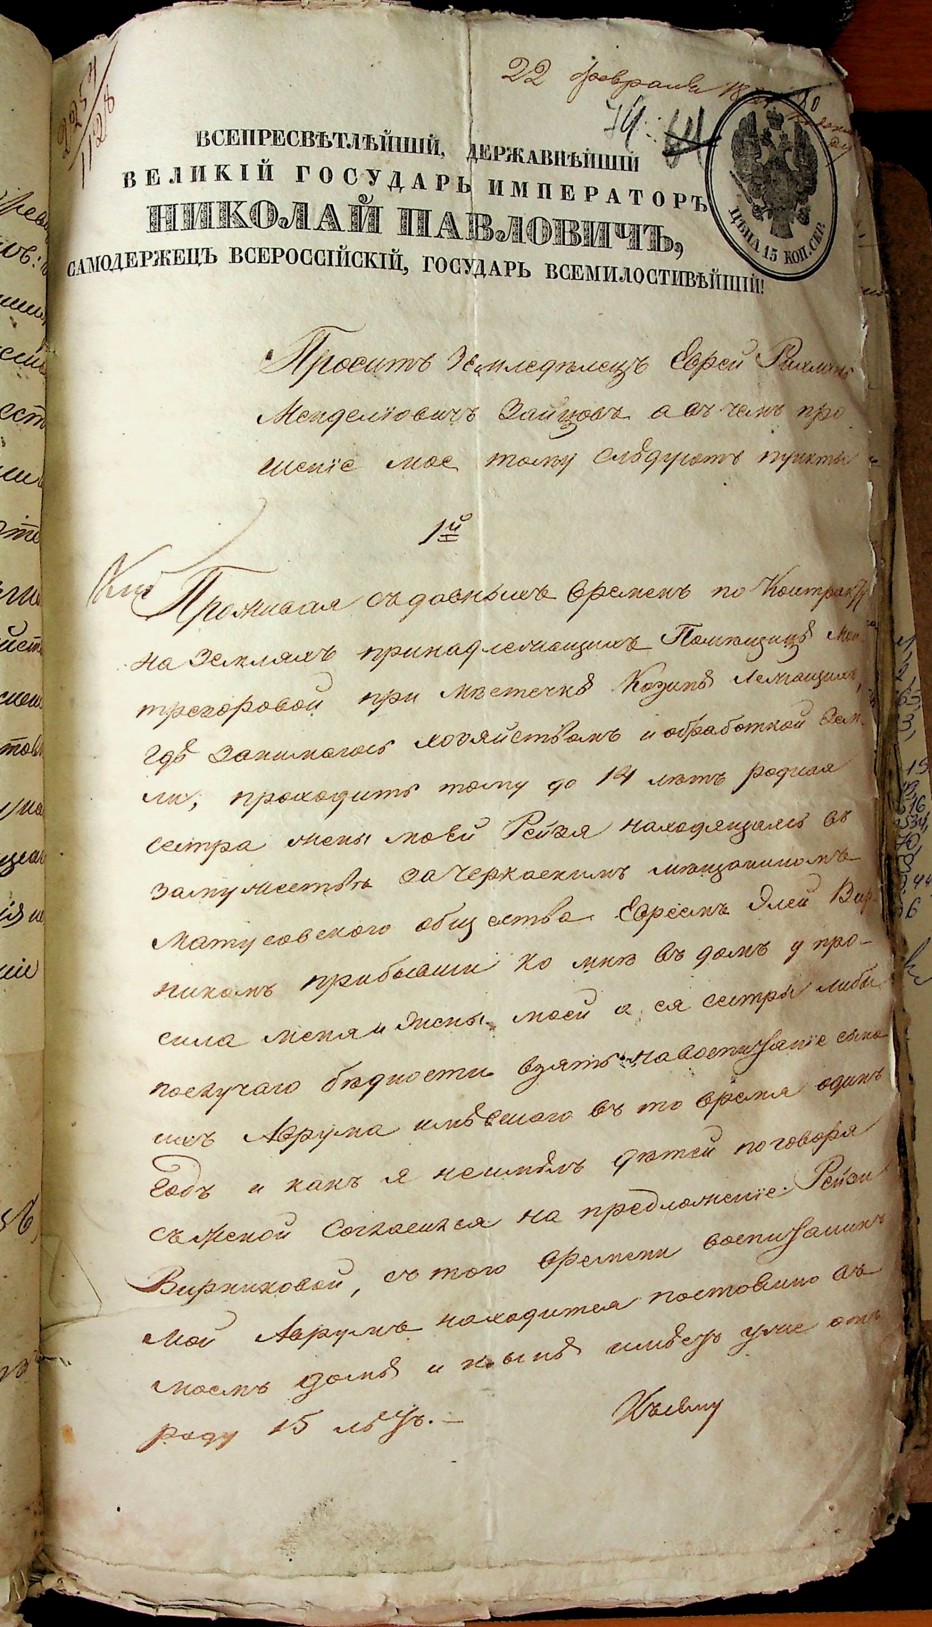 22 февраля
2257
1128
74.
ВСЕПРЕСВѢТЛѢЙШІЙ, ДЕРЖАВНѢЙШІЙ
ВЕЛИКІЙ ГОСУДАРЬ ИМПЕРАТОРЪ
НИКОЛАЙ ПАВЛОВИЧЪ,
САМОДЕРЖЕЦЪ ВСЕРОССІЙСКІЙ, ГОСУДАРЬ ВСЕМИЛОСТИВѢЙШІЙ!
ЦѢНА 15 КОП. СЕР.
Проситъ Земледѣлецъ Еврей Рахмиль
Менделіовичъ Зайцовъ а въ чемъ про
шеніе мое тому слѣдуютъ пункты
1й
Проживая съ давныхъ временъ по Контракту
на Земляхъ принадлежащихъ Помѣщицѣ
при мѣстечкѣ Козинѣ лежащихъ,
гдѣ занимаюсь хозяйствомъ и обработкой Зем
ли; проходитъ тому до 14 лѣтъ родная
сестра жены моей Рейзя находящаясь въ
замужествѣ за Черкаскимъ мѣщаниномъ
Матусовскаго общества Евреемъ Элей Вир
никомъ прибывши ко мнѣ въ домъ упро-
сила меня и жены моей а ея сестры либы
послучаю бѣдности взять навоспитаніе сына
ихъ Аврума имѣвшаго въ то время одинъ
Годъ и какъ я неимѣлъ дѣтей поговоря
съ женой согласился на предложеніе Рейзи
Вирниковой, съ того времени воспитанникъ
мой Аврумъ находится постоянно въ
моемъ домѣ и нынѣ имѣетъ уже отъ
роду 15 лѣтъ. —
Къ сему